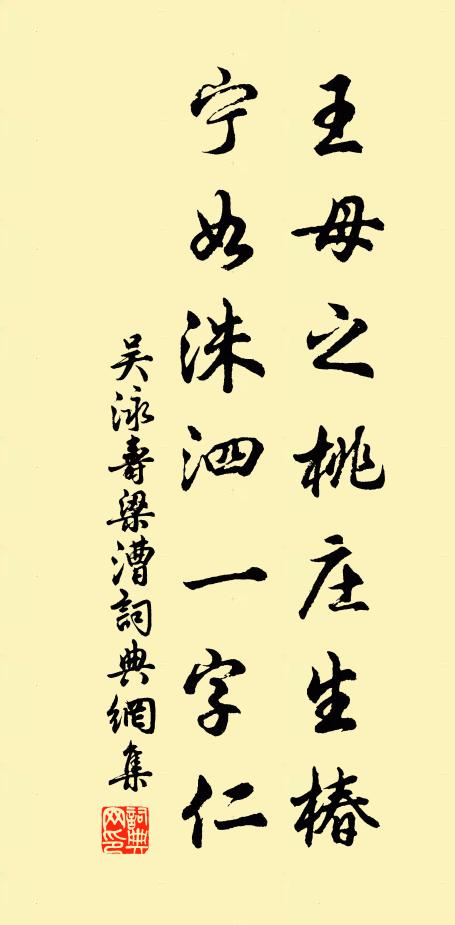 王母之桃庄生椿
宁如洙泗一字仁
吴泳壽梁漕詞典網集
詞典网印